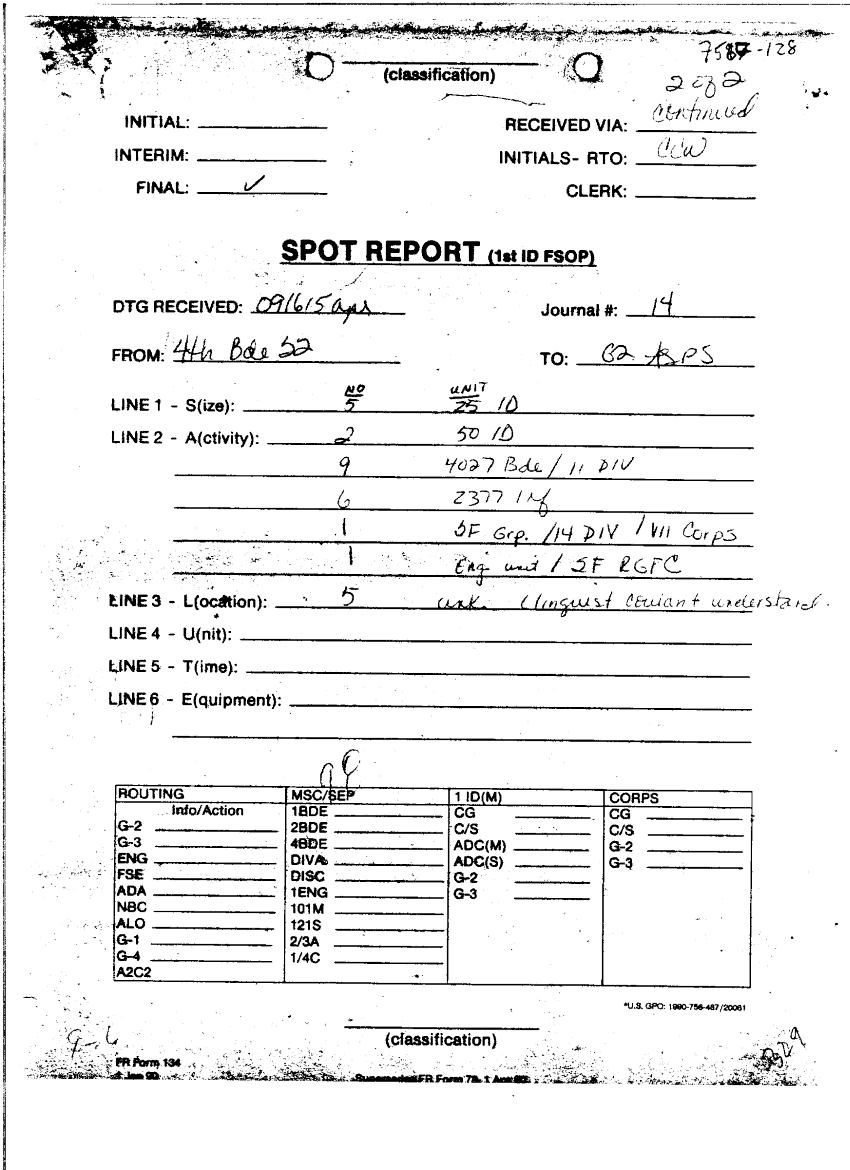 -128
2 of 2
(classification)
continued
INITIAL:
RECEIVED VIA:
INTERIM:
INITIALS- RTO: CCW
FINAL: ✓
CLERK:
SPOT REPORT (1st ID FSOP)
DTG RECEIVED: 091615 apr
Journal #: 14
FROM: 4th Bde S2
TO: G2
NO UNIT
LINE 1 - S(ize): 5 25 ID
LINE 2 - A(ctivity): 2 50 ID
9 4027 Bde / 11 DIV
6 2377 Inf
1 SF Grp. /14 DIV / VII Corps
1 Eng unit / SF RGFC
LINE 3 - L(ocation): 5 unk. linguist understand.
LINE 4 - U(nit):
LINE 5 - T(ime):
LINE 6 - E(quipment):
ROUTING MSC/SEP 1 ID(M) CORPS
Info/Action 1BDE CG CG
G-2 2BDE C/S C/S
G-3 4BDE ADC(M) G-2
ENG DIVA ADC(S) G-3
FSE DISC G-2
ADA 1ENG G-3
NBC 101M
ALO 121S
G-1 2/3A
G-4 1/4C
A2C2
*U.S. GPO: 1990-756-487/20061
(classification)
FR Form 134
1 Jan 90 Supersedes FR Form 79, 1 Apr